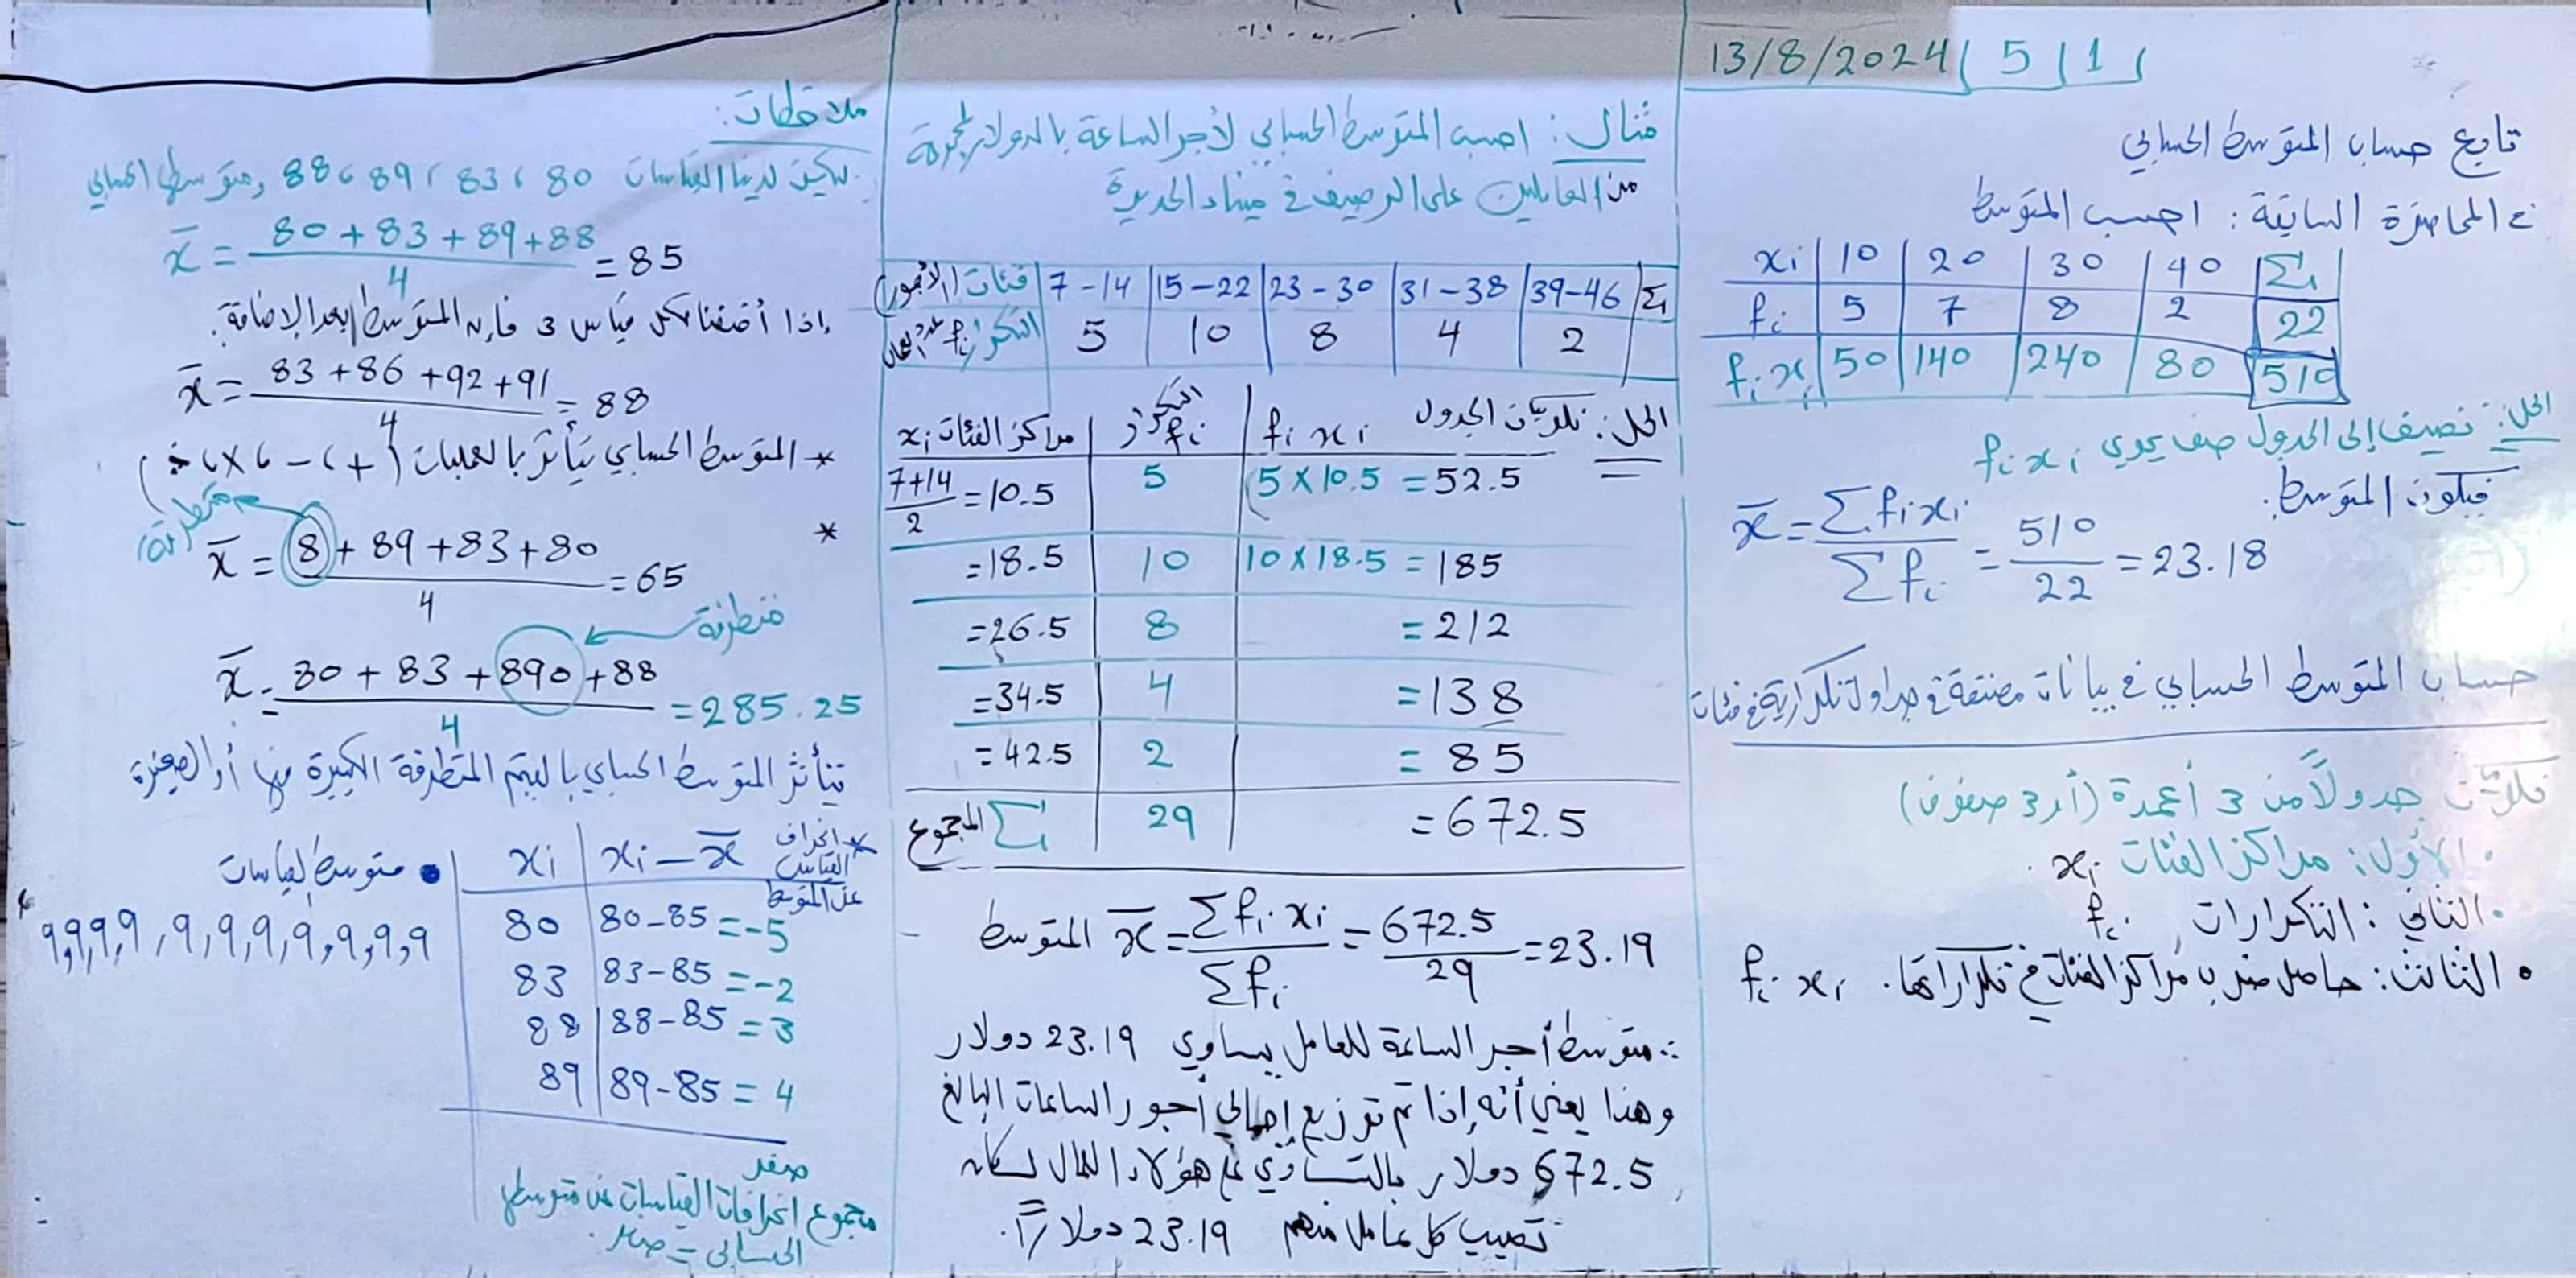 13/8/2024 | 5 | 1
تابع حساب المتوسط الحسابي
في المحاضرة السابقة: احسب المتوسط
xi | 10 | 20 | 30 | 40 | Σ
fi | 5 | 7 | 8 | 2 | 22
fi xi | 50 | 140 | 240 | 80 | 510
الحل: نضيف إلى الجدول صف يحوي fi xi
فيكون المتوسط:
x̄ = Σ fi xi / Σ fi = 510 / 22 = 23.18
حساب المتوسط الحسابي في بيانات مصنفة في جداول تكرارية في فئات
نكوّن جدولاً من 3 أعمدة (أو 3 صفوف)
• الأول: مراكز الفئات xi.
• الثاني: التكرارات fi
• الثالث: حاصل ضرب مراكز الفئات في تكراراتها. fi xi
مثال: احسب المتوسط الحسابي لأجر الساعة بالدولار لمجموعة
من العاملين على الرصيف في ميناء الحديدة
فئات (الأجور) | 7-14 | 15-22 | 23-30 | 31-38 | 39-46 | Σ
التكرار fi عدد العمال | 5 | 10 | 8 | 4 | 2
الحل: نكوّن الجدول
مراكز الفئات xi | التكرار fi | fi xi
7+14 / 2 = 10.5 | 5 | 5 × 10.5 = 52.5
= 18.5 | 10 | 10 × 18.5 = 185
= 26.5 | 8 | = 212
= 34.5 | 4 | = 138
= 42.5 | 2 | = 85
المجموع Σ | 29 | = 672.5
المتوسط x̄ = Σ fi xi / Σ fi = 672.5 / 29 = 23.19
∴ متوسط أجر الساعة للعامل يساوي 23.19 دولار
وهذا يعني أنه إذا تم توزيع إجمالي أجور الساعات البالغ
672.5 دولار بالتساوي على هؤلاء العمال لكان
نصيب كل عامل منهم 23.19 دولاراً.
ملاحظات:
ليكن لدينا القياسات 80، 83، 89، 88 ومتوسطها الحسابي
x̄ = 80 + 83 + 89 + 88 / 4 = 85
إذا أضفنا لكل قياس 3 فإن المتوسط بعد الإضافة:
x̄ = 83 + 86 + 92 + 91 / 4 = 88
* المتوسط الحسابي يتأثر بالعمليات (+، -، ×، ÷)
متطرفة
* x̄ = 8 + 89 + 83 + 80 / 4 = 65
متطرفة
x̄ = 80 + 83 + 890 + 88 / 4 = 285.25
يتأثر المتوسط الحسابي بالقيم المتطرفة الكبيرة منها أو الصغيرة
* انحراف القياس عن المتوسط
xi | xi - x̄
80 | 80-85 = -5
83 | 83-85 = -2
88 | 88-85 = 3
89 | 89-85 = 4
صفر
مجموع انحرافات القياسات عن متوسطها
الحسابي = صفر.
• متوسط القياسات
9,9,9,9,9,9,9,9,9,9,9